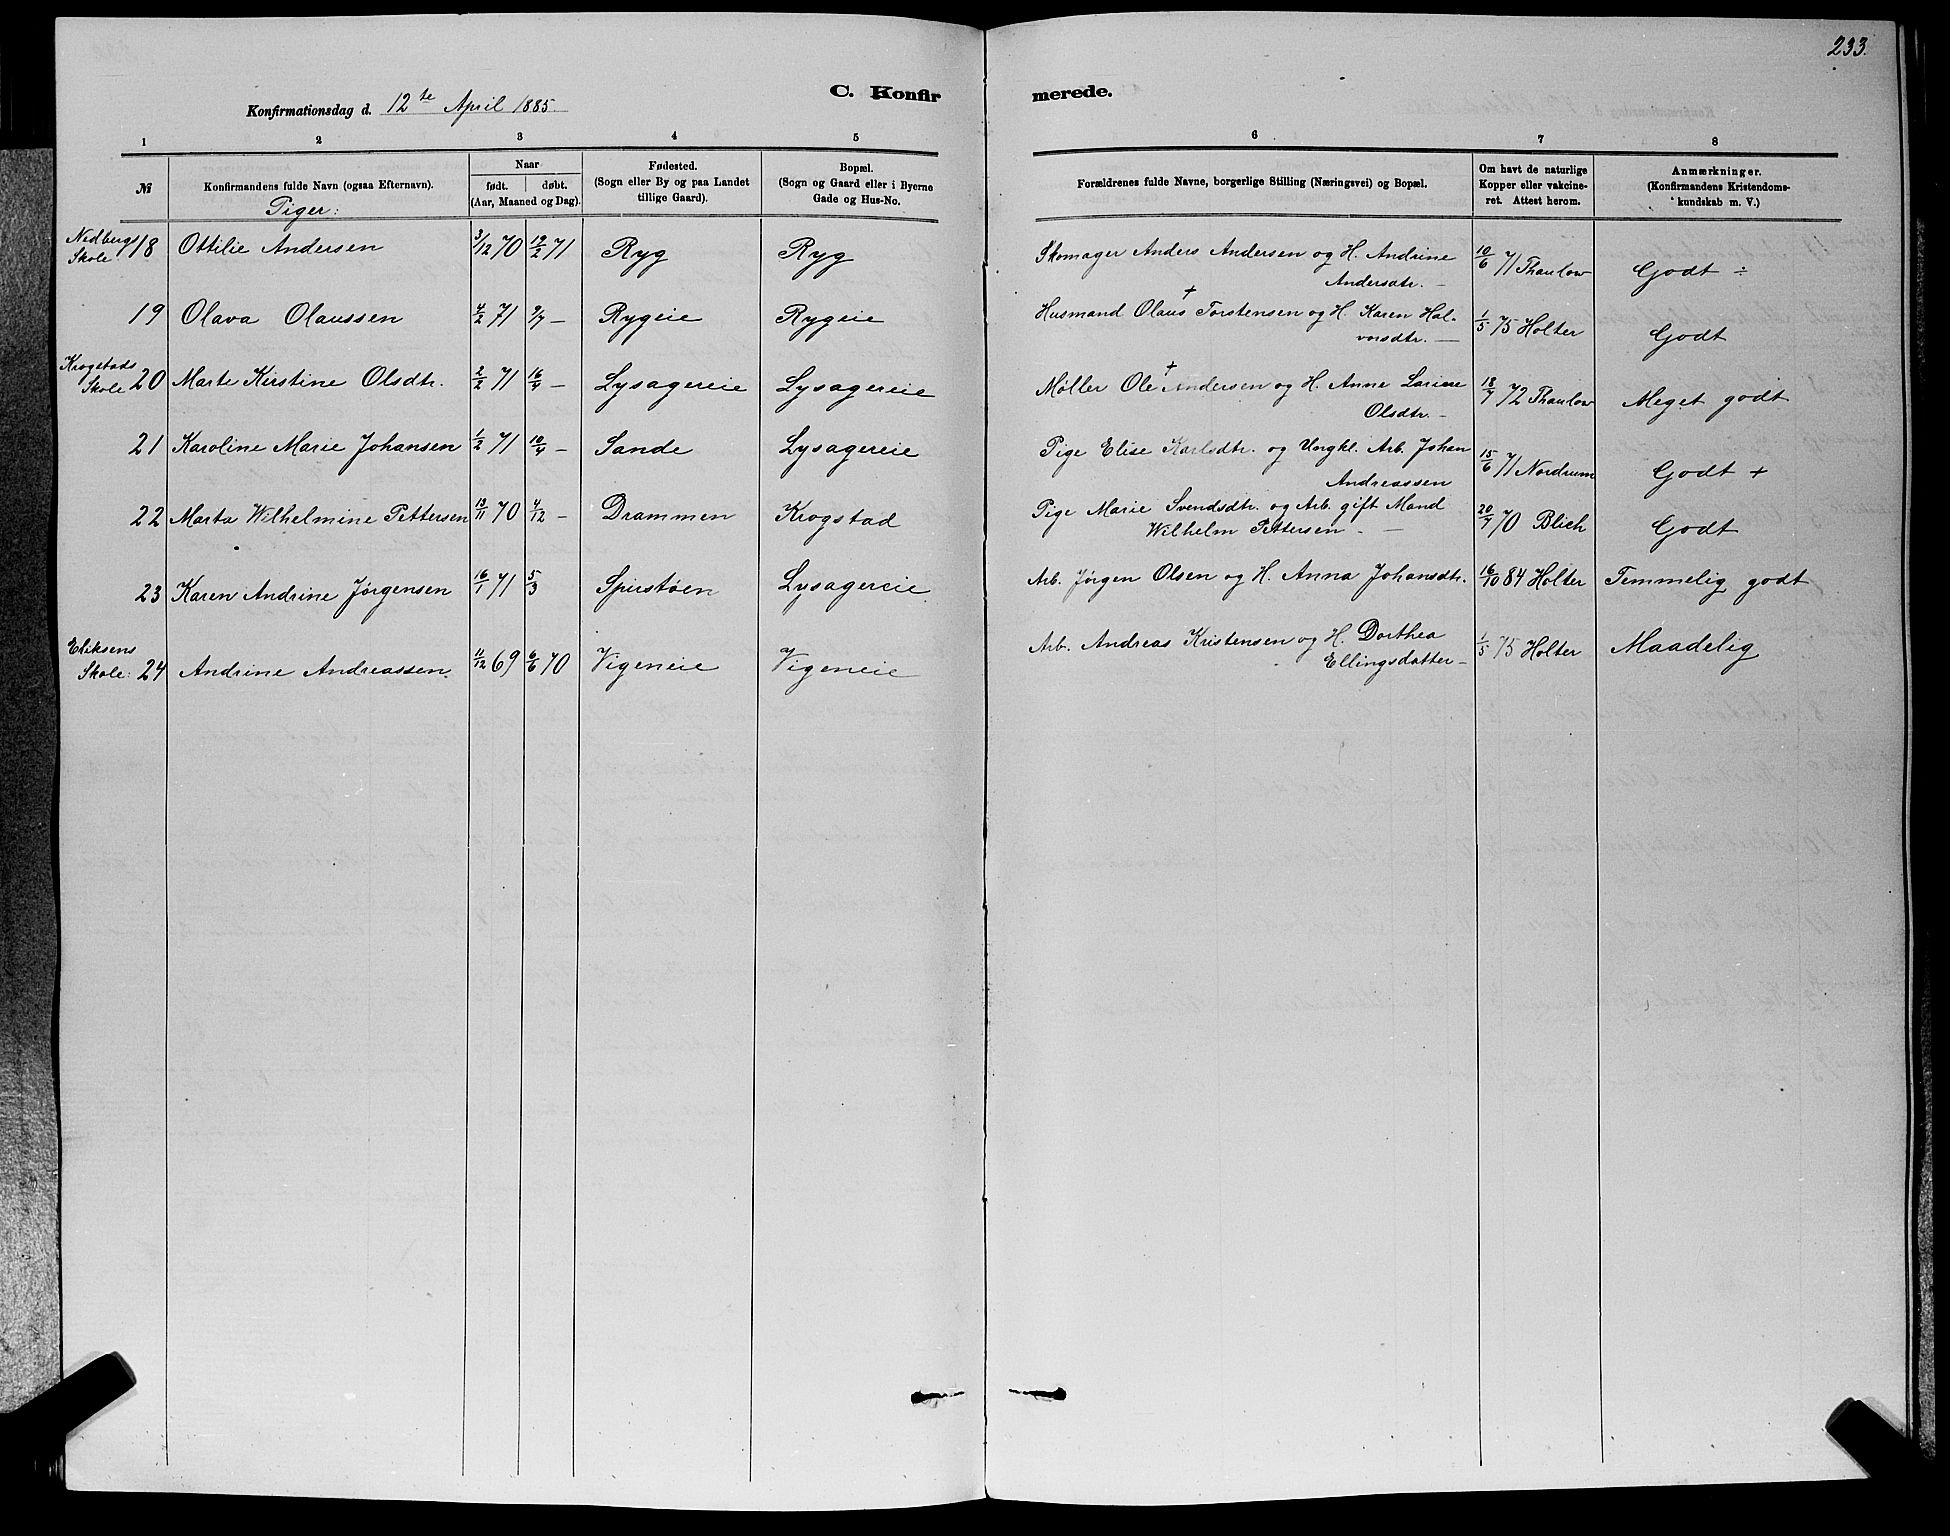 233.
C. Konfirmerede.
Konfirmationsdag d. 12te April 1885.
1 2 3 4 5 6 7 8
№
Konfirmandens fulde Navn (ogsaa Efternavn).
Naar
født. døbt.
(Aar, Maaned og Dag).
Fødested.
(Sogn eller By og paa Landet
tillige Gaard).
Bopæl.
(Sogn og Gaard eller i Byerne
Gade og Hus-No.
Forældrenes fulde Navne, borgerlige Stilling (Næringsvei) og Bopæl.
Om havt de naturlige
Kopper eller vakcine-
ret. Attest herom.
Anmærkninger.
(Konfirmandens Kristendoms-
kundskab m. V.)
Piger:
Nedbergs Skole 18 Ottilie Andersen 3/12 70 19/2 71 Ryg Ryg Skomager Anders Andersen og H. Andrine 10/6 71 Thaulow Godt ÷
Andersdtr. —
19 Olava Olaussen 4/2 71 9/7 — Rygeie Rygeie Husmand Olaus † Torstensen og H. Karen Hal- 1/5 75 Holter Godt
vorsdtr. —
Krogstads Skole 20 Marte Kirstine Olsdtr. 2/2 71 16/4 — Lysagereie Lysagereie Møller Ole † Andersen og H. Anne Larine 18/7 72 Thaulow Meget godt
Olsdtr. —
21 Karoline Marie Johansen 1/2 71 10/4 — Sande Lysagereie Pige Elise Karlsdtr. og Ungkl. Arb. Johan 15/6 71 Nordrum Godt +
Andreassen
22 Marta Wilhelmine Pettersen 13/11 70 4/12 — Drammen Krogstad Pige Marie Svendsdtr. og Arb. gift Mand 20/7 70 Blich Godt
Wilhelm Pettersen — —
23 Karen Andrine Jørgensen 16/1 71 5/3 Spirstøen Lysagereie Arb. Jørgen Olsen og H. Anna Johansdtr. 16/10 84 Holter Temmelig godt
Eriksens Skole: 24 Andrine Andreassen. 11/12 69 6/6 70 Vigeneie Vigeneie Arb. Andreas Kristensen og H. Dorthea 1/5 75 Holter Maadelig
Ellingsdatter —